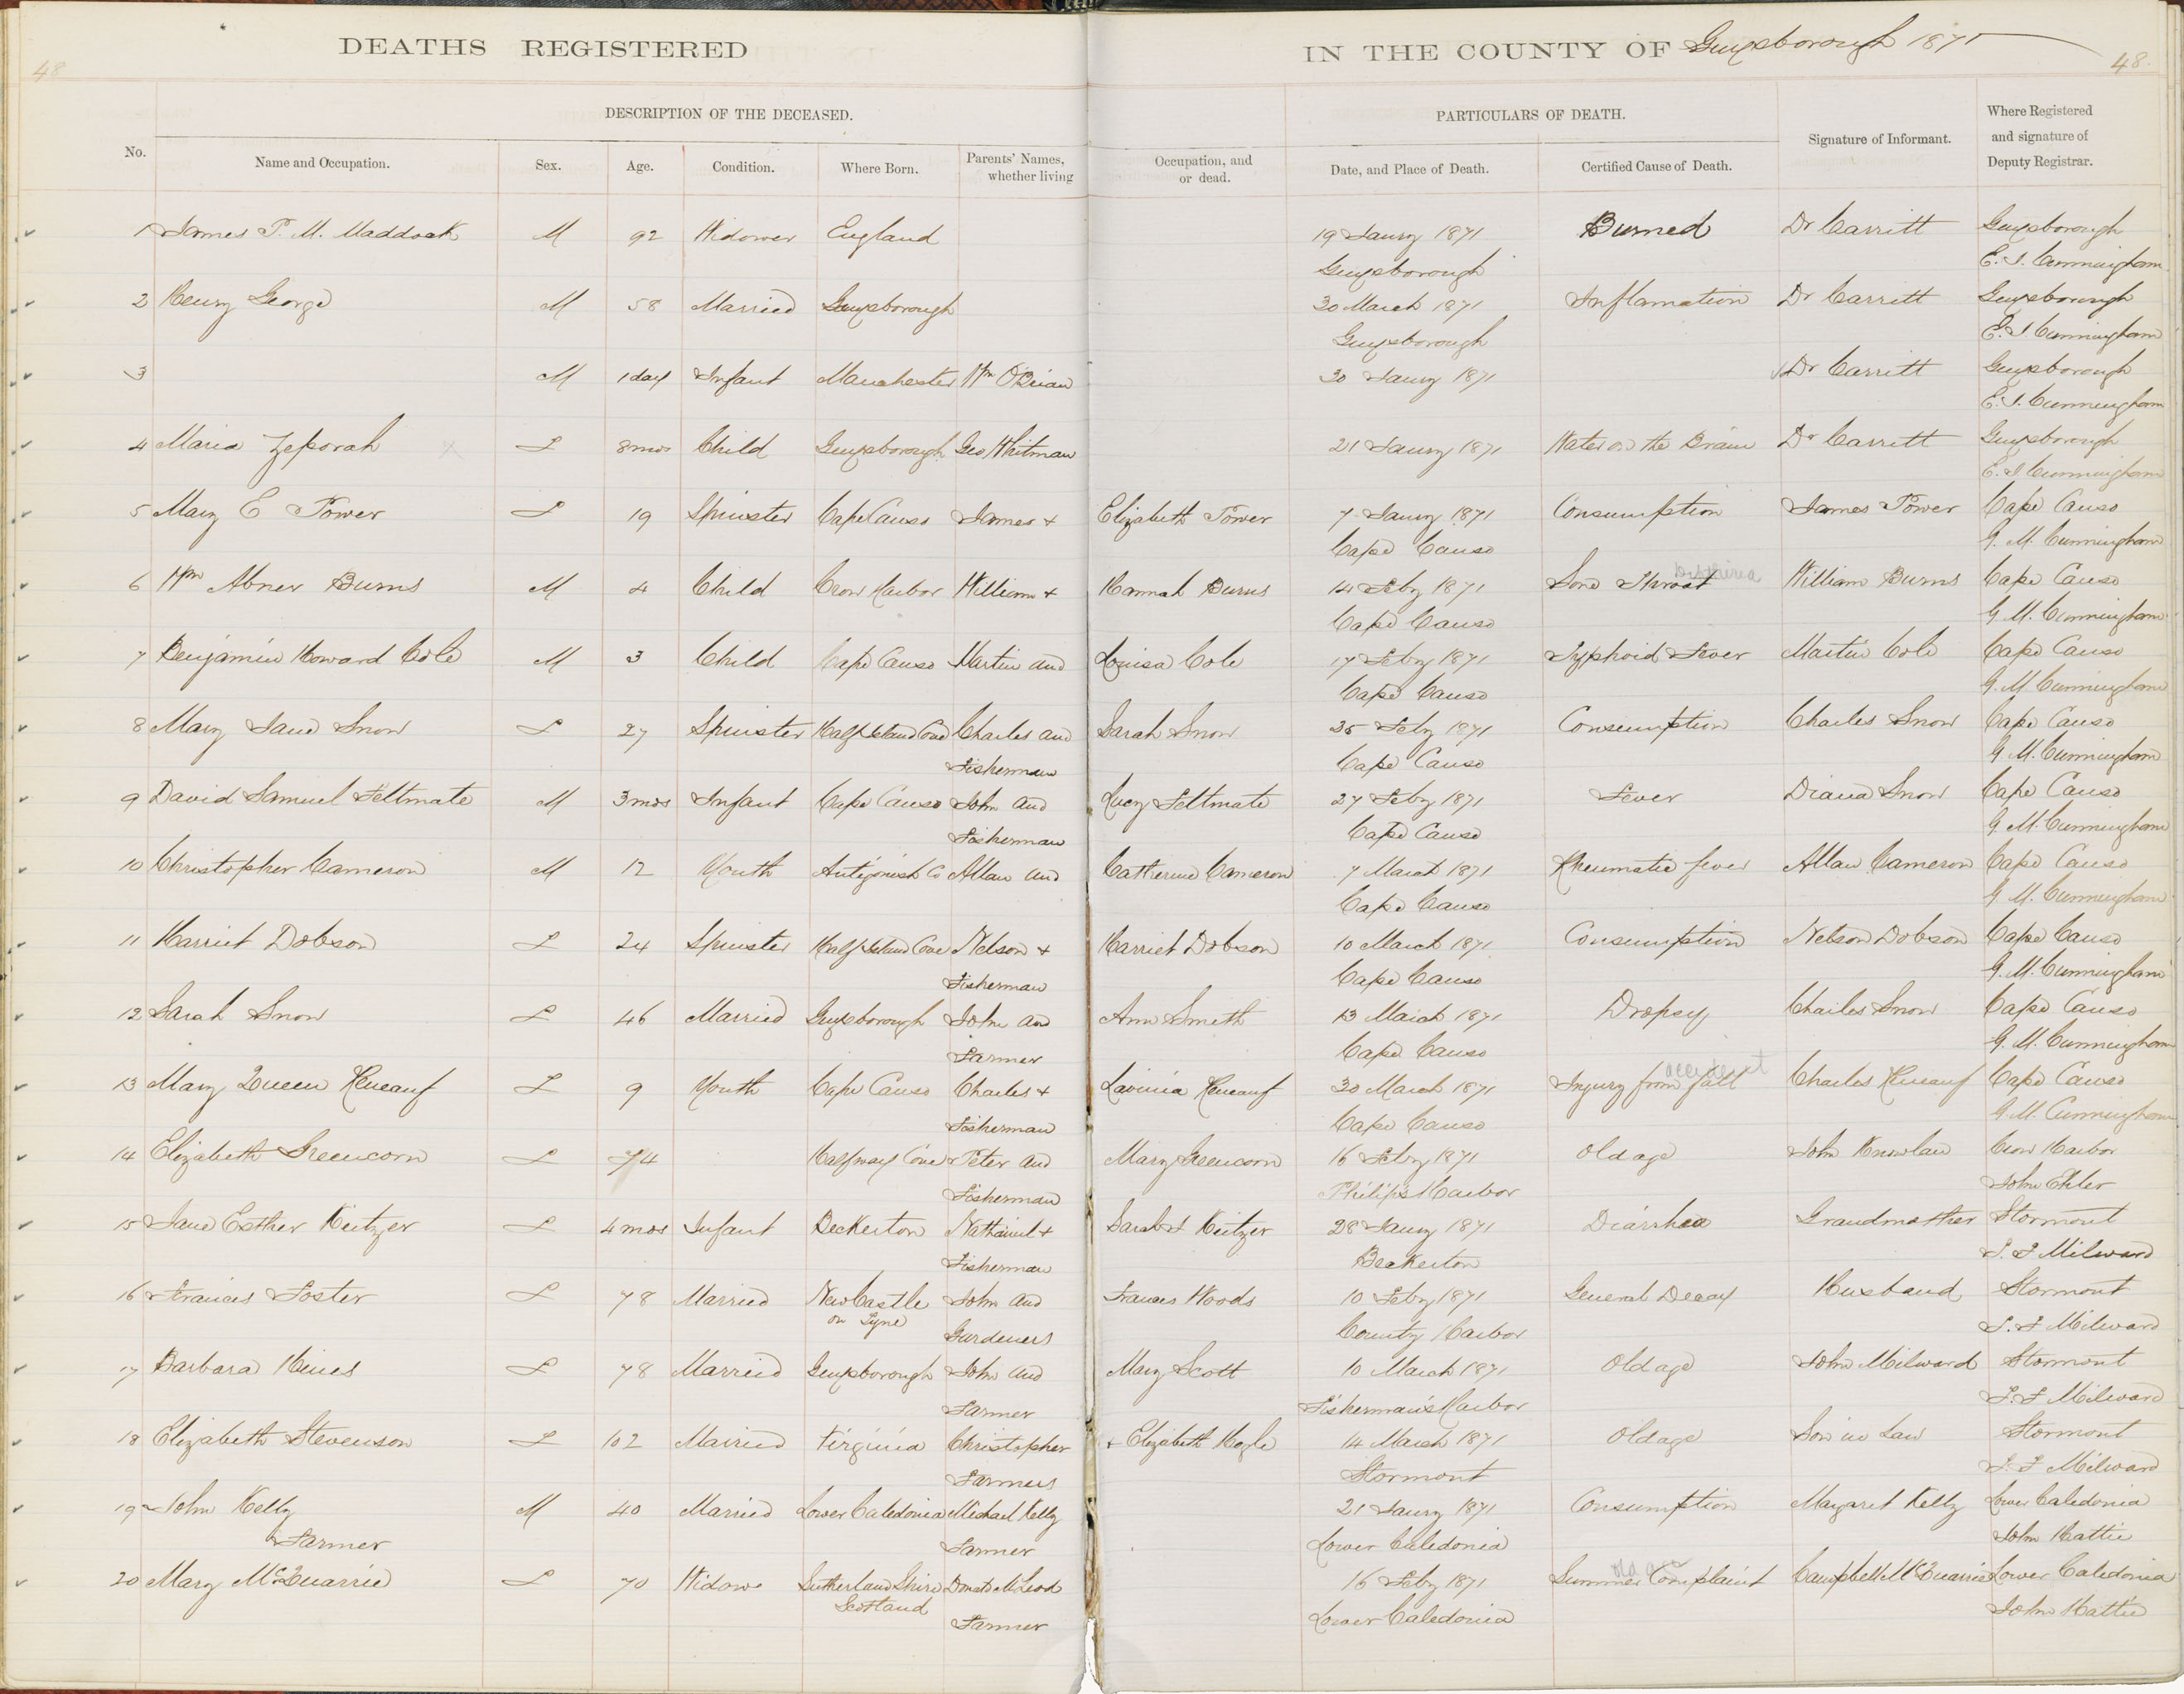 DEATHS REGISTERED IN THE COUNTY OF Guysborough 1871
48 48.
DESCRIPTION OF THE DECEASED. PARTICULARS OF DEATH.
No. Name and Occupation. Sex. Age. Condition. Where Born. Parents' Names, whether living Occupation, and or dead. Date, and Place of Death. Certified Cause of Death. Signature of Informant. Where Registered and signature of Deputy Registrar.
1 James T. M. Maddock M 92 Widower England 19 Jany 1871 Burned Dr Carritt Guysborough
Guysborough E. I. Cunningham
2 Henry George M 58 Married Guysborough 30 March 1871 Inflamation Dr Carritt Guysborough
Guysborough E. I. Cunningham
3 M 1 day Infant Manchester Wm O'Brian 30 Jany 1871 Dr Carritt Guysborough
E. I. Cunningham
4 Maria Zeporah F 8 mos Child Guysborough Geo Whitman 21 Jany 1871 Water on the Brain Dr Carritt Guysborough
E. I Cunningham
5 Mary E Tower F 19 Spinster Cape Canso James + Elizabeth Tower 7 Jany 1871 Consumption James Tower Cape Canso
Cape Canso G. M. Cunningham
6 Wm Abner Burns M 4 Child Crow Harbor William + Hannah Burns 14 Feby 1871 Sore Throat William Burns Cape Canso
Cape Canso G M. Cunningham
7 Benjamin Howard Cole M 3 Child Cape Canso Martin and Louisa Cole 17 Feby 1871 Typhoid Fever Martin Cole Cape Canso
Cape Canso G. M Cunningham
8 Mary Jane Snow F 27 Spinster Half Island Cove Charles and Sarah Snow 25 Feby 1871 Consumption Charles Snow Cape Canso
Fisherman Cape Canso G M. Cunningham
9 David Samuel Feltmate M 3 mos Infant Cape Canso John and Lucy Feltmate 27 Feby 1871 Fever Diana Snow Cape Canso
Fisherman Cape Canso G M. Cunningham
10 Christopher Cameron M 12 Youth Antigonish Co Allan and Catherine Cameron 7 March 1871 Rheumatic fever Allan Cameron Cape Canso
Cape Canso G. M. Cunningham
11 Harriet Dobson F 24 Spinster Half Island Cove Nelson + Harriet Dobson 10 March 1871 Consumption Nelson Dobson Cape Canso
Fisherman Cape Canso G. M. Cunningham
12 Sarah Snow F 46 Married Guysborough John and Ann Smith 13 March 1871 Dropsy Charles Snow Cape Canso
Farmer Cape Canso G. M. Cunningham
accident
13 Mary Queen F 9 Youth Cape Canso Charles + Lavinia 30 March 1871 Injury from fall Charles Cape Canso
Fisherman Cape Canso G. M. Cunningham
14 Elizabeth Greencorn F 74 Halfway Cove Peter and Mary Greencorn 16 Feby 1871 Old age John Knowlan Crow Harbor
Fisherman Philip's Harbor John Ehler
15 Jane Esther Keitzer F 4 mos Infant Beckerton Nathaniel + Sarah Keitzer 28 Jany 1871 Diarrhea Grandmother Stormont
Fisherman Beckerton S. F Milward
16 Frances Foster F 78 Married New Castle on Tyne John and Frances Woods 10 Feby 1871 General Decay Husband Stormont
Gardeners County Harbor S. F Milward
17 Barbara Hines F 78 Married Guysborough John and Mary Scott 10 March 1871 Old age John Milward Stormont
Farmer Fisherman's Harbor S. F Milward
18 Elizabeth Stevenson F 102 Married Virginia Christopher + Elizabeth Hogle 14 March 1871 Old age Son in Law Stormont
Farmers Stormont S. F Milward
19 John Kelly M 40 Married Lower Caledonia Michael Kelly 21 Jany 1871 Consumption Margaret Kelly Lower Caledonia
Farmer Farmer Lower Caledonia John Hattie
old age
20 Mary McQuarrie F 70 Widow Sutherland Shire Donald McLeod 16 Feby 1871 Summer Complaint Campbell McQuarrie Lower Caledonia
Scotland Farmer Lower Caledonia John Hattie